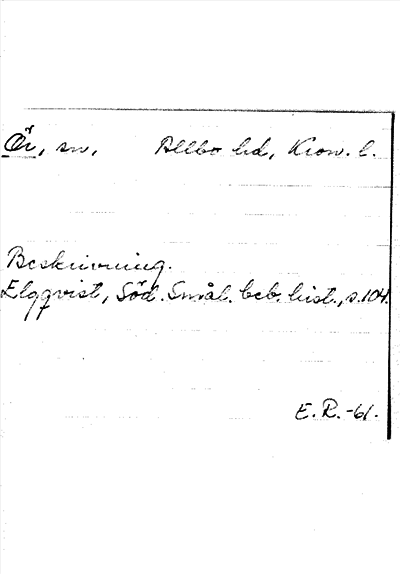 Ör, sn,    Allbo hd, Kron. l.
Beskrivning.
Elgqvist, Söd. Smål. beb. hist., s. 104.
E. R. -61.